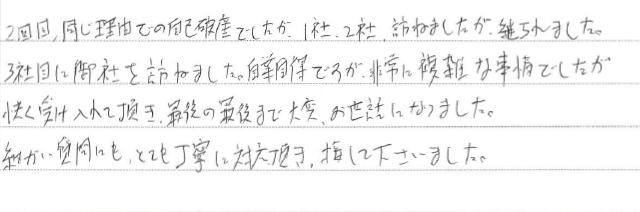 2回目、同じ理由での自己破産でしたが、1社、2社、訪ねましたが、断られました。
3社目に御社を訪ねました。自業自得ですが、非常に複雑な事情でしたが
快く受け入れて頂き、最後の最後まで大変、お世話になりました。
細かい質問にも、とても丁寧に対応頂き、接して下さいました。